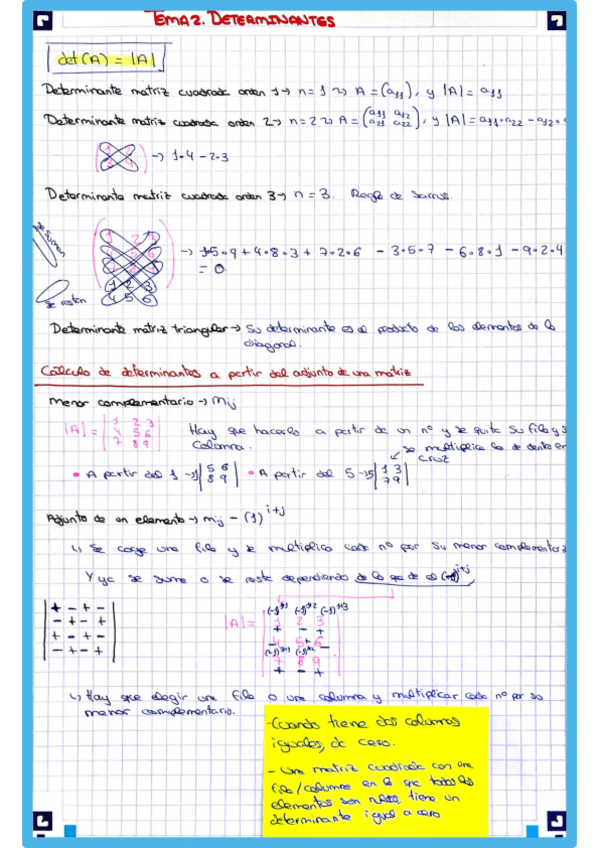 TEMA 2. DETERMINANTES
det(A) = |A|
Determinante matriz cuadrada orden 1 → n = 1 ⇝ A = (a₁₁), y |A| = a₁₁
Determinante matriz cuadrada orden 2 → n = 2 ⇝ A = (a₁₁ a₁₂ a₂₁ a₂₂), y |A| = a₁₁·a₂₂ - a₁₂·
→ 1·4 - 2·3
Determinante matriz cuadrada orden 3 → n = 3. Regla de Sarrus.
se suman
→ 1·5·9 + 4·8·3 + 7·2·6 - 3·5·7 - 6·8·1 - 9·2·4
= 0
1 2 3
4 5 6
se restan
Determinante matriz triangular → Su determinante es el producto de los elementos de la
diagonal.
Cálculo de determinantes a partir del adjunto de una matriz
Menor complementario → mij
|A| = |1 2 3
4 5 6
7 8 9|
Hay que hacerlo a partir de un nº y se quita su fila y s
columna.
se multiplica lo de dentro en
cruz
• A partir del 1 → 1|5 6 8 9| • A partir del 5 → 5|1 3 7 9|
Adjunto de un elemento → mij - (1)^i+j
↳ Se coge una fila y se multiplica cada nº por su menor complementario
Y ya se suma o se resta dependiendo de lo que de el (-1)^i+j
+ - + -
- + - +
+ - + -
- + - +
|A| =
(-1)^1+1 (-1)^1+2 (-1)^1+3
1 2 3
+ - +
4 5 6
- + -
7 8 9
+ - +
↳ Hay que elegir una fila o una columna y multiplicar cada nº por su
menor complementario.
- Cuando tiene dos columnas
iguales, da cero.
- Una matriz cuadrada con una
fila/columna en la que todos los
elementos son nulos, tiene un
determinante igual a cero